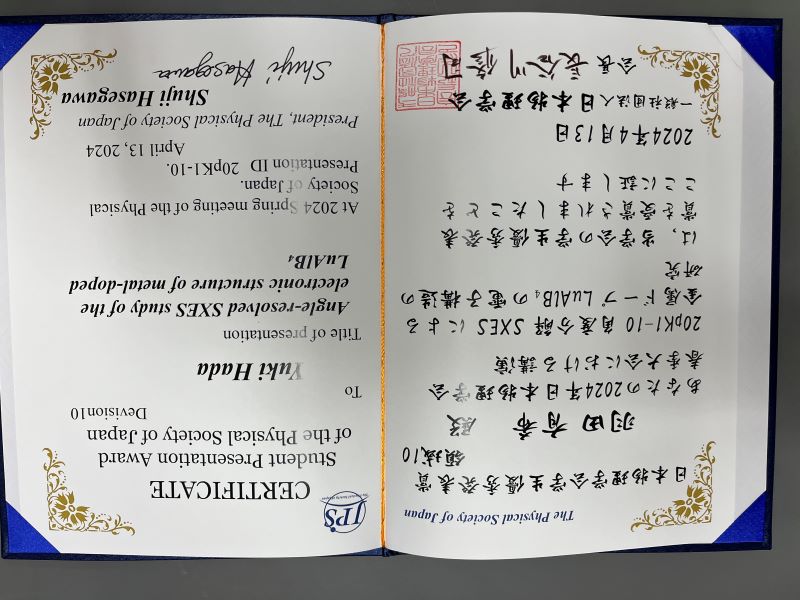 The Physical Society of Japan
日本物理学会学生優秀発表賞
領域10
羽田 有希 殿
あなたの2024年日本物理学会
春季大会における講演
20pK1-10 角度分解 SXES による
金属ドープ LuAlB₄の電子構造の
研究
は、当学会の学生優秀発表
賞を受賞されましたことを
ここに証します
2024年4月13日
一般社団法人日本物理学会
会長 長谷川修司
JPS
The Physical Society of Japan
CERTIFICATE
Student Presentation Award
of the Physical Society of Japan
Devision10
To
Yuki Hada
Title of presentation
Angle-resolved SXES study of the
electronic structure of metal-doped
LuAlB₄
At 2024 Spring meeting of the Physical
Society of Japan.
Presentation ID 20pK1-10.
April 13, 2024
President, The Physical Society of Japan
Shuji Hasegawa
Shuji Hasegawa